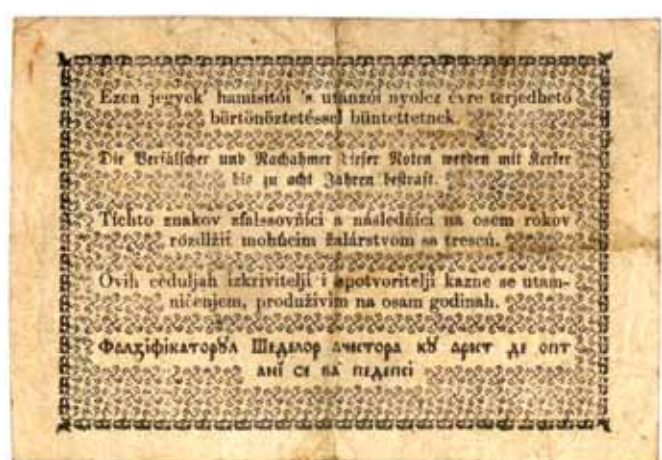 Ezen jegyek' hamisitói 's utánzói nyolcz évre terjedhető
börtönöztetéssel büntettetnek.
Die Verfälscher und Nachahmer dieser Noten werden mit Kerker
bis zu acht Jahren bestraft.
Tíchto znakov zfalssovňíci a následňíci na osem rokov
rózdlžiť mohúcim žalárstvom sa trescú.
Ovih ceduljah izkrivitelji i spotvoritelji kazne se utam-
ničenjem, produživim na osam godinah.
Фалзіфікаторꙋл Шеделор ачестора кꙋ арест де опт
ані се ва педепсі